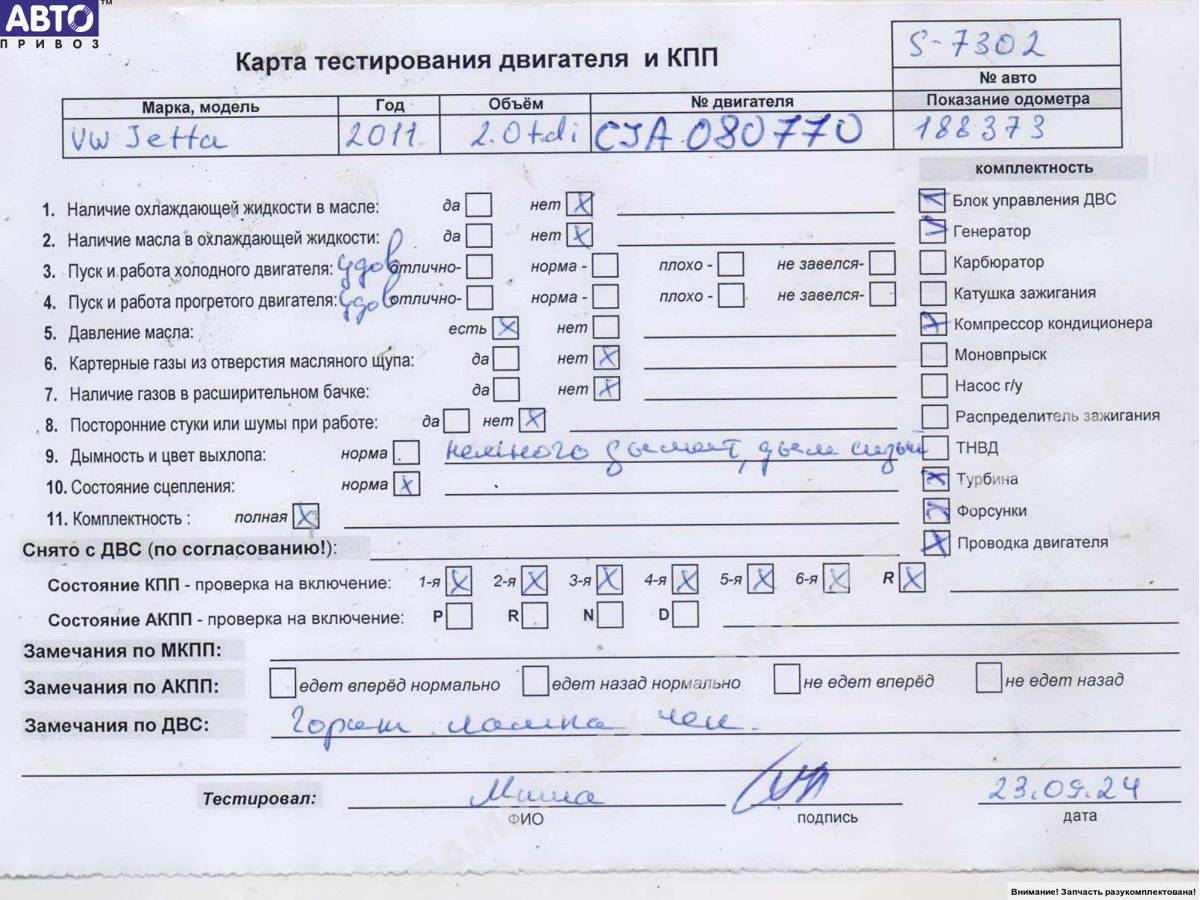 АВТО™
ПРИВОЗ
S-7302
Карта тестирования двигателя и КПП
№ авто
Марка, модель Год Объём № двигателя Показание одометра
VW Jetta 2011 2.0tdi CJA 080770 188373
комплектность
1. Наличие охлаждающей жидкости в масле: да нет X
Блок управления ДВС
2. Наличие масла в охлаждающей жидкости: да нет X
Генератор
3. Пуск и работа холодного двигателя: удов отлично- норма - плохо - не завелся-
Карбюратор
4. Пуск и работа прогретого двигателя: удов отлично- норма - плохо - не завелся-
Катушка зажигания
5. Давление масла: есть X нет
Компрессор кондиционера
6. Картерные газы из отверстия масляного щупа: да нет X
Моновпрыск
7. Наличие газов в расширительном бачке: да нет X
Насос г/у
8. Посторонние стуки или шумы при работе: да нет X
Распределитель зажигания
9. Дымность и цвет выхлопа: норма немного дымит, дым сизый
ТНВД
10. Состояние сцепления: норма X
Турбина
11. Комплектность : полная X
Форсунки
Снято с ДВС (по согласованию!):
Проводка двигателя
Состояние КПП - проверка на включение: 1-я X 2-я X 3-я X 4-я X 5-я X 6-я X R X
Состояние АКПП - проверка на включение: P R N D
Замечания по МКПП:
Замечания по АКПП: едет вперёд нормально едет назад нормально не едет вперёд не едет назад
Замечания по ДВС: Горит лампа чек.
Тестировал: Миша 23.09.24
ФИО подпись дата
Внимание! Запчасть разукомплектована!